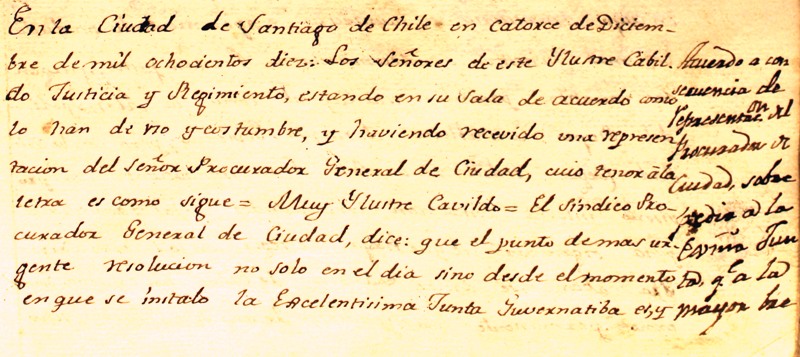 En la Ciudad de Santiago de Chile en catorce de Diciem-
bre de mil ochocientos diez: Los Señores de este Ylustre Cabil-
do Justicia y Regimiento, estando en su Sala de acuerdo como
lo han de uso y costumbre, y haviendo recevido una represen
tacion del Señor Procurador General de Ciudad, cuio tenor â la
letra es como sigue = Muy Ylustre Cavildo = El Síndico Pro-
curador General de Ciudad, dice: que el punto de mas ur-
gente resolucion no solo en el dia sino desde el momento
en que se instalo la Excelentisima Junta Guvernatiba es, y
Acuerdo a con
secuencia de
representac.on del
Procurador de
Ciudad, sobre
pedir a la
Junta, q.e a la
mayor bre